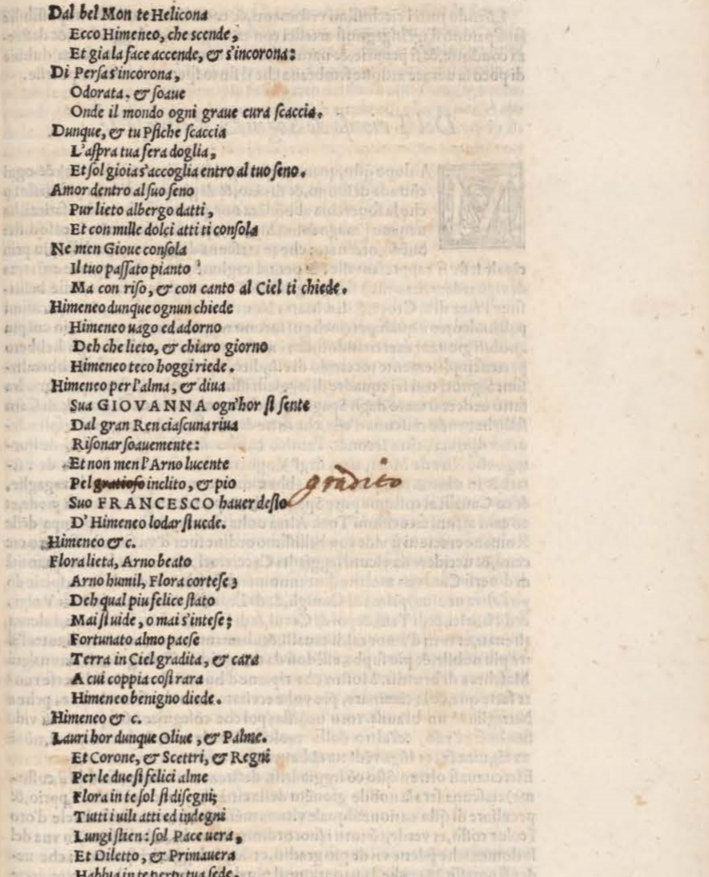 Dal bel Mon te Helicona
Ecco Himeneo, che scende,
Et gia la face accende, & s'incorona:
Di Persa s'incorona,
Odorata, & soaue
Onde il mondo ogni graue cura scaccia.
Dunque, & tu Psiche scaccia
L'aspra tua fera doglia,
Et sol gioia s'accoglia entro al tuo seno.
Amor dentro al suo seno
Pur lieto albergo datti,
Et con mille dolci atti ti consola
Ne men Gioue consola
Il tuo passato pianto
Ma con riso, & con canto al Ciel ti chiede.
Himeneo dunque ognun chiede
Himeneo uago ed adorno
Deh che lieto, & chiaro giorno
Himeneo teco hoggi riede.
Himeneo per l'alma, & diua
Sua GIOVANNA ogn'hor si sente
Dal gran Ren ciascuna riua
Risonar soauemente:
Et non men l'Arno lucente
Pel gratioso inclito, & pio gradito
Suo FRANCESCO hauer desio
D'Himeneo lodar si uede.
Himeneo & c.
Flora lieta, Arno beato
Arno humil, Flora cortese;
Deh qual piu felice stato
Mai si uide, o mai s'intese;
Fortunato almo paese
Terra in Ciel gradita, & cara
A cui coppia cosi rara
Himeneo benigno diede.
Himeneo & c.
Lauri hor dunque Oliue, & Palme.
Et Corone, & Scettri, & Regni
Per le due si felici alme
Flora in te sol si disegni;
Tutti i uili atti ed indegni
Lungi stien: sol Pace uera,
Et Diletto, & Primauera
Habbia in te perpetua sede.